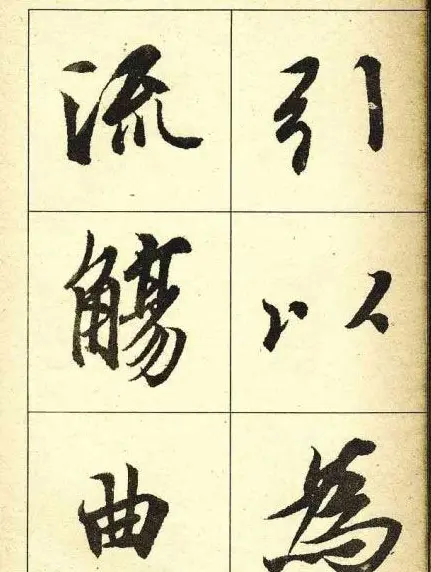 引以為
流觴曲